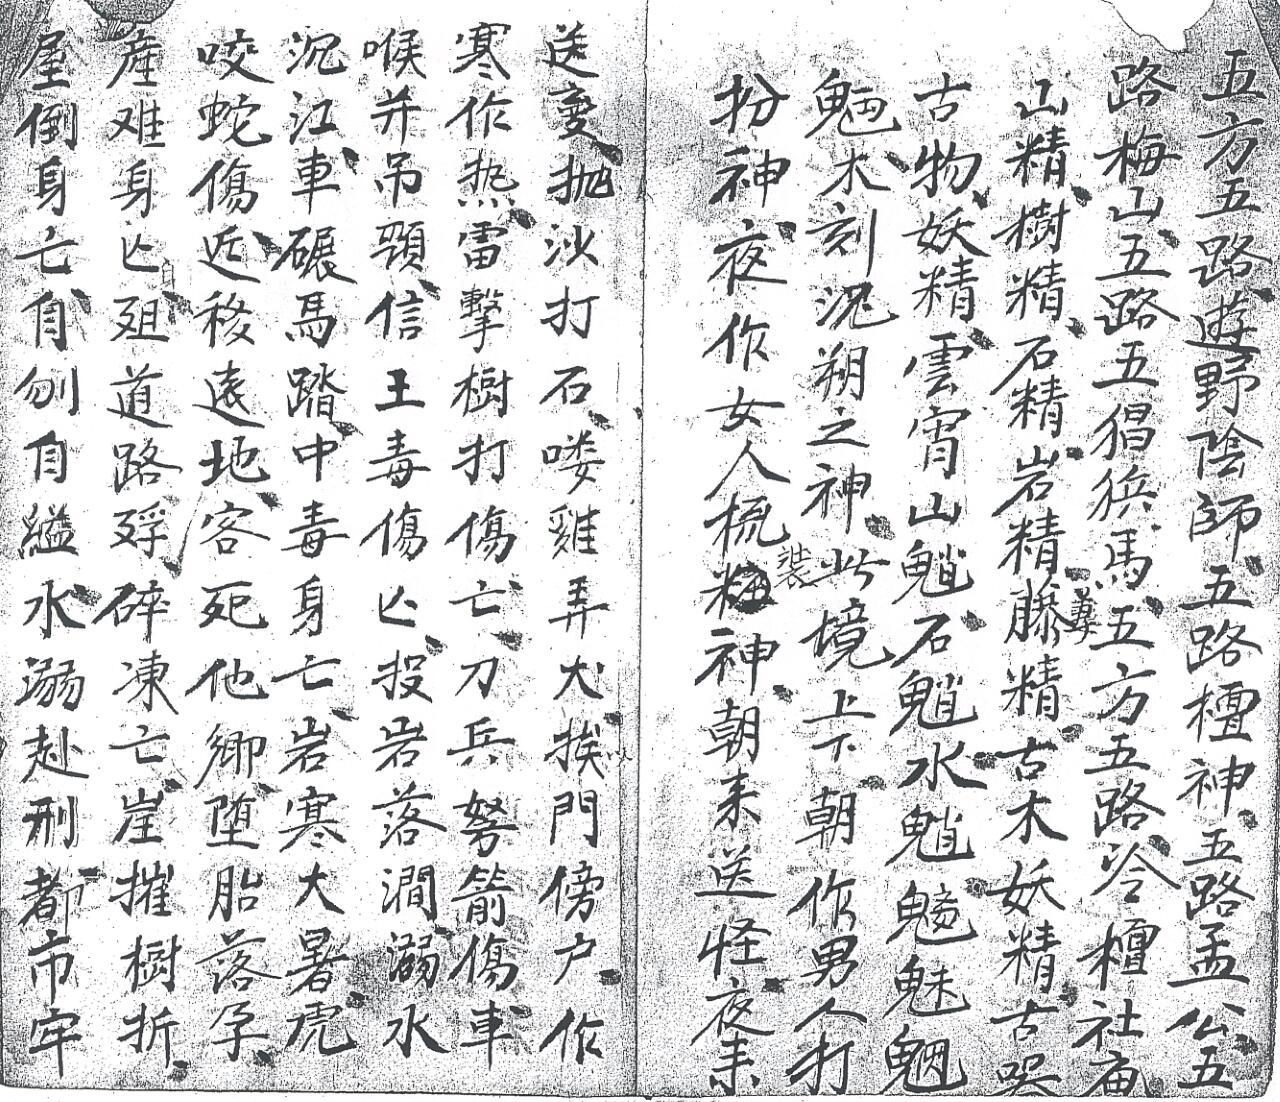 五方五路遊野陰師五路檀神五路孟公五
路梅山五路五猖兵馬五方五路冷檀社庙
山精樹精石精岩精藤精古木妖精古器
古物妖精雲宵山魈石魈水魈魑魅魍
魎木刻泥朔之神此境上下朝作男人打
扮神夜作女人梳裝神朝来送怪夜来
送变抛沙打石喽雞弄犬挨門傍户作
寒作热雷擊樹打傷亡刀兵弩箭傷車
喉并吊頸信王毒傷亡投岩落澗溺水
沉江車碾馬踏中毒身亡岩寒大暑虎
咬蛇傷近移遠地客死他卿堕胎落孕
産难身亡殂道路殍碎凍亡崖摧樹折
屋倒身亡自刎自縊水溺赴刑都市牢